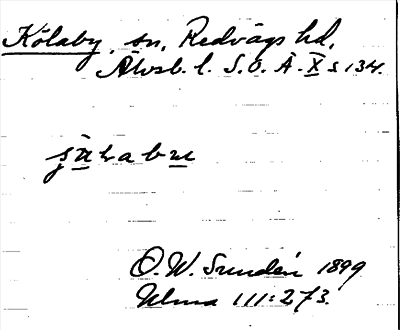 Kölaby, sn, Redvägs hd,
Älvsb. l. S.O. Ä. X s 134.
O. W. Sundén 1899
Ulma 111:273.